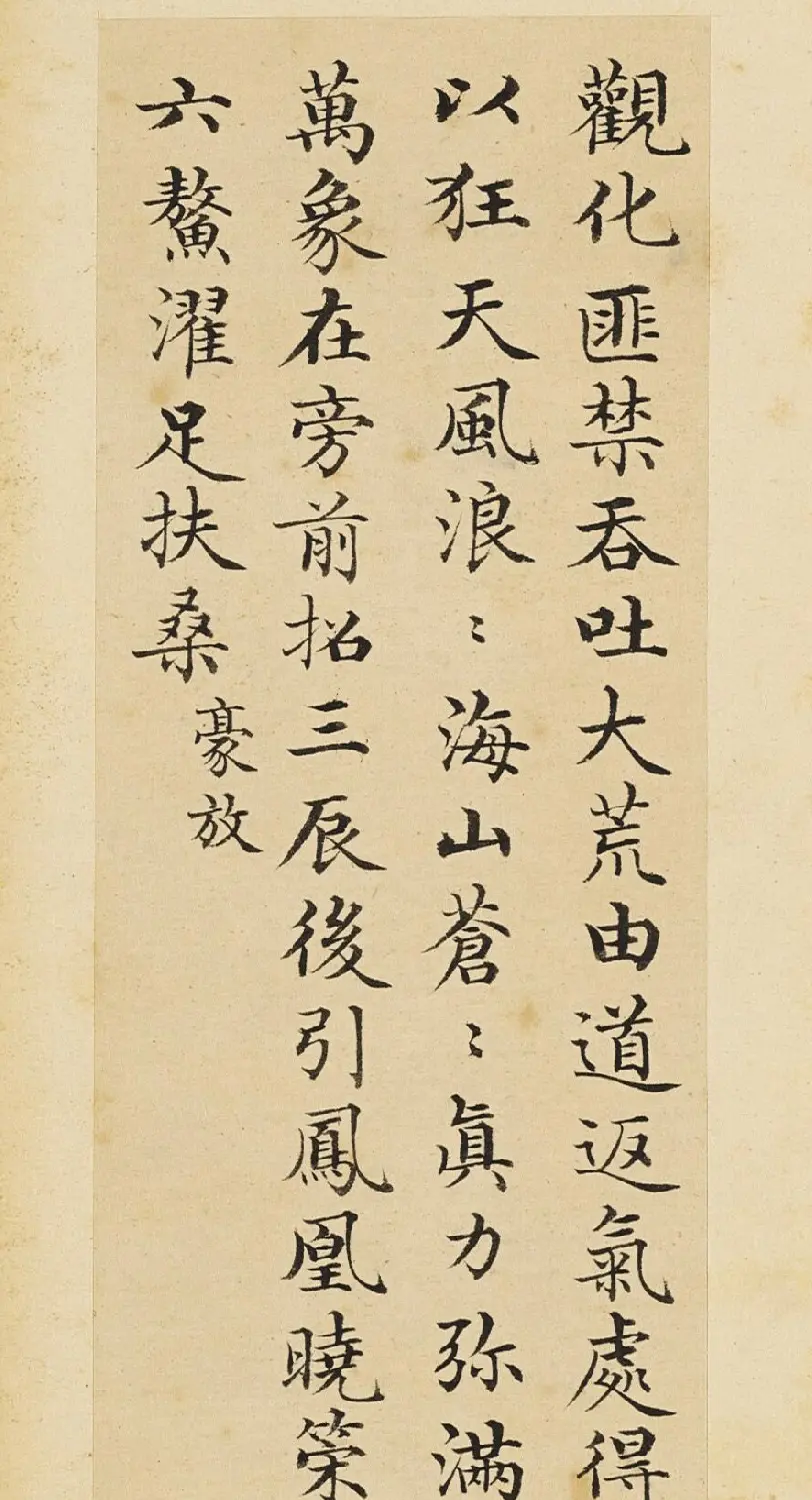 觀化匪禁吞吐大荒由道返氣處得
以狂天風浪〻海山蒼〻眞力弥滿
萬象在旁前招三辰後引鳳凰曉策
六鰲濯足扶桑
豪放